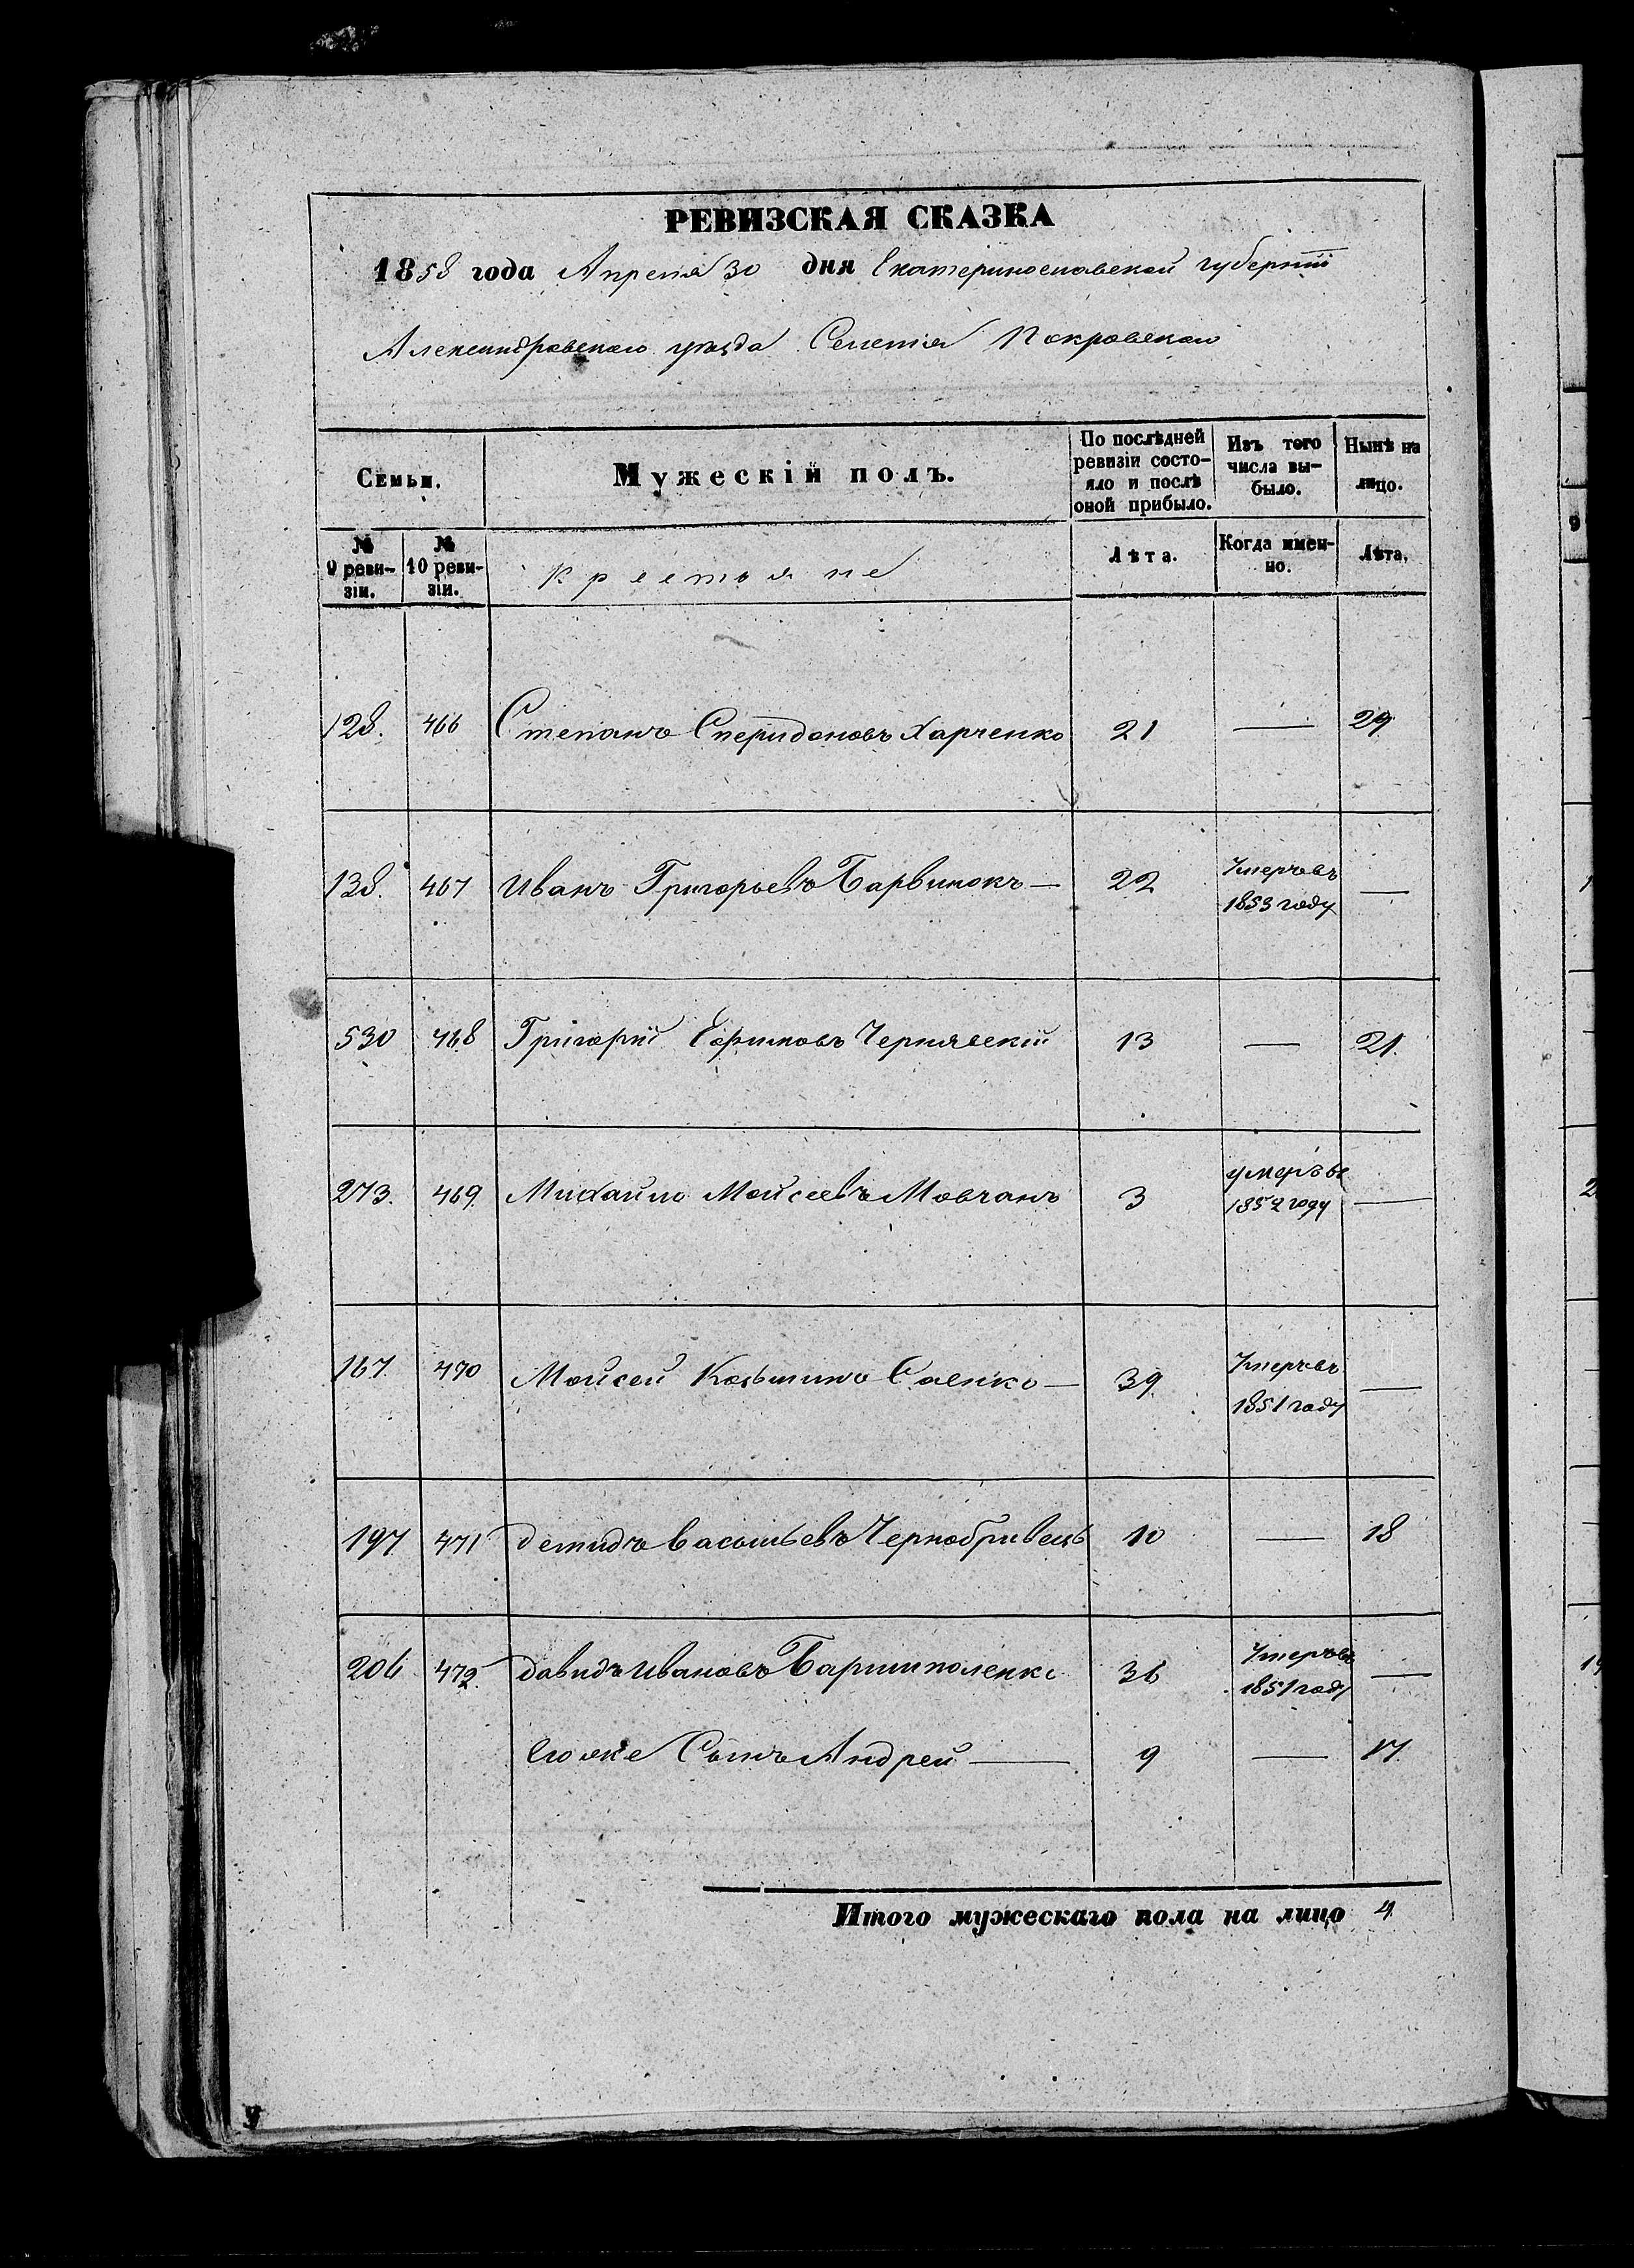 РЕВИЗСКАЯ СКАЗКА
1858 года Апреля 30 дня Екатеринославской губернiи
Александровскаго уѣзда Селенiя Покровскаго
Семьи.
Мужескiй полъ.
По послѣдней ревизiи состо-
яло и послѣ оной прибыло.
Изъ того числа вы-
было.
Нынѣ на лицо.
№ 9 реви-
зiи.
№ 10 реви-
зiи.
Крестьяне
Лѣта.
Когда имен-
но.
Лѣта.
128. 466 Степанъ Сперидоновъ Харченко 21 — 29
138. 467 Иванъ Григорьевъ Барвинокъ — 22 Умеръ въ 1853 году —
530 468 Григорiй Ефимовъ Чернявскiй 13 — 21.
273. 469. Михайло Мойсеевъ Мовчанъ 3 умеръ въ 1852 году —
167. 470 Мойсей Козьминъ Саенко — 39 Умеръ въ 1851 году —
197 471 Демидъ Васильевъ Чернобривецъ 10 — 18
206 472. Давидъ Ивановъ Баришполенко 36 Умеръ въ 1851 году —
Егоже Сынъ Андрей — 9 — 17.
Итого мужескаго пола на лицо 4